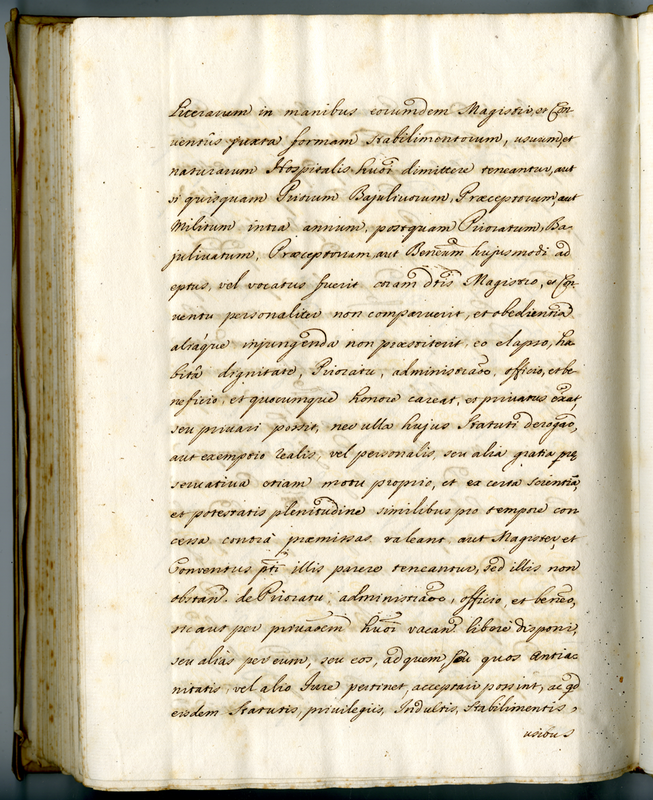 Literarum in manibus eorumdem Magistri, et Con-
ventûs juxta formam Stabilimentorum, usuum, et
naturarum Hospitalis huõi dimittere teneantur, aut
si quisquam Priorum Bajulivorum, Præceptorum, aut
Militum intra annum, postquam Prioratum, Ba-
julivatum, Præceptoriam aut Beneãm hujusmodi ad
eptus, vel vocatus fuerit etiam dtis Magistro, et Con-
ventu personaliter non comparuerit, et obedientia
aliàque injungenda non præstiterit, eo elapso, ha
bitâ dignitate, Prioratu, administraõe, officio, et be-
neficio, et quocumque honore careat, et privatus exãt,
seu privari possit, nec ulla hujus Statuti derogaõ,
aut exemptio realis, vel personalis, seu alia gratia præ
servativa etiam motu proprio, et ex certa scientia,
et potestatis plenitudine similibus pro tempore con
cessa contra præmissas valeant, aut Magister, et
Conventus p̃ti illis parere teneantur, sed illis non
obstañ. de Prioratu, administraõe, officio, et beneo,
sic aut per privaõem huõi vacañ libere disponi,
seu alias per eum, seu eos, ad quem, seu quos Antia-
nitatis, vel alio Jure pertinet, acceptari possint, ac qd
eisdem Statutis, privilegiis, Indultis, Stabilimentis,
usibus